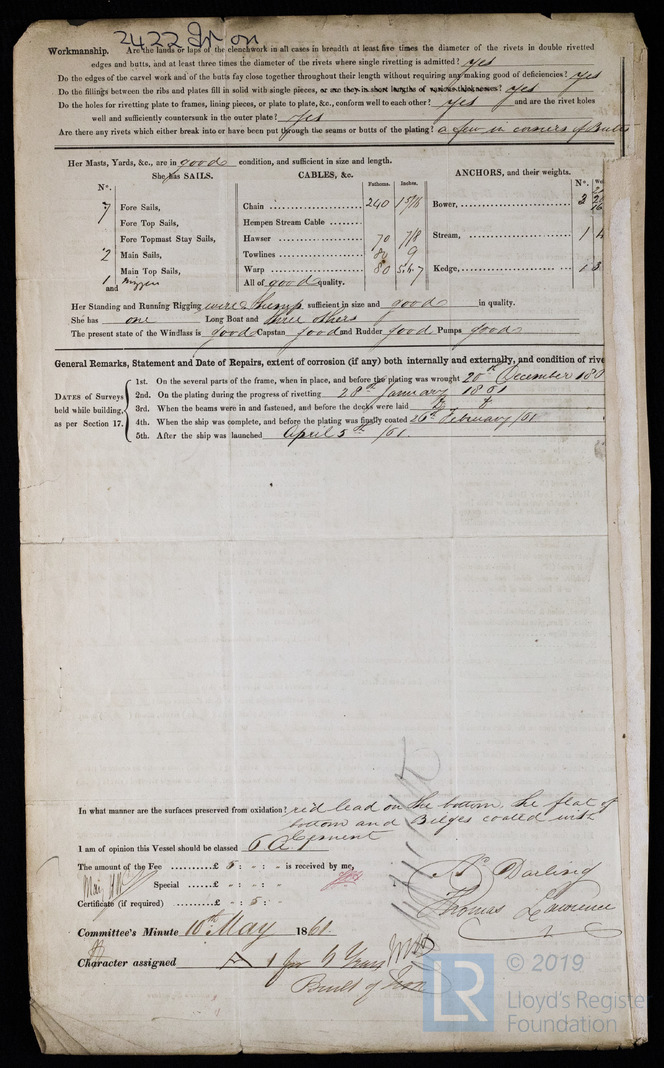 2422 Iron
Workmanship. Are the lands or laps of the clenchwork in all cases in breadth at least five times the diameter of the rivets in double rivetted
edges and butts, and at least three times the diameter of the rivets where single rivetting is admitted? yes
Do the edges of the carvel work and of the butts fay close together throughout their length without requiring any making good of deficiencies? yes
Do the fillings between the ribs and plates fill in solid with single pieces, or are they in short lengths of various thicknesses? yes
Do the holes for rivetting plate to frames, lining pieces, or plate to plate, &c., conform well to each other? yes and are the rivet holes
well and sufficiently countersunk in the outer plate? yes
Are there any rivets which either break into or have been put through the seams or butts of the plating? a few in corners of Butts
Her Masts, Yards, &c., are in good condition, and sufficient in size and length.
She has SAILS. CABLES, &c. ANCHORS, and their weights.
N°. Fathoms. Inches. N°.
7 Fore Sails, Chain 240 1 5/16 Bower, 3
Fore Top Sails, Hempen Stream Cable
Fore Topmast Stay Sails, Hawser 70 7/8 Stream, 1
2 Main Sails, Towlines 80 9
Main Top Sails, Warp 80 5.4.7 Kedge, 1
1 and All of good quality.
Her Standing and Running Rigging were Hemp sufficient in size and good in quality.
She has one Long Boat and three others
The present state of the Windlass is good Capstan good and Rudder good Pumps good
General Remarks, Statement and Date of Repairs, extent of corrosion (if any) both internally and externally, and condition of rive
DATES of Surveys held while building, as per Section 17.
1st. On the several parts of the frame, when in place, and before the plating was wrought 20th December 180
2nd. On the plating during the progress of rivetting 28th January 1861
3rd. When the beams were in and fastened, and before the decks were laid
4th. When the ship was complete, and before the plating was finally coated 26th February /61
5th. After the ship was launched April 5th /61.
In what manner are the surfaces preserved from oxidation? red lead on the bottom, the flat of
bottom and Bilges coated with
Cement
I am of opinion this Vessel should be classed 6 A 1
The amount of the Fee £ 5 : - : - is received by me,
Special £ - : - : -
Certificate (if required) £ - : 5 :
Darling
Thomas Lawrence
Committee's Minute 10th May 1861.
Character assigned A 1 for 6 Years
Built of Iron
LR © 2019
Lloyd's Register
Foundation